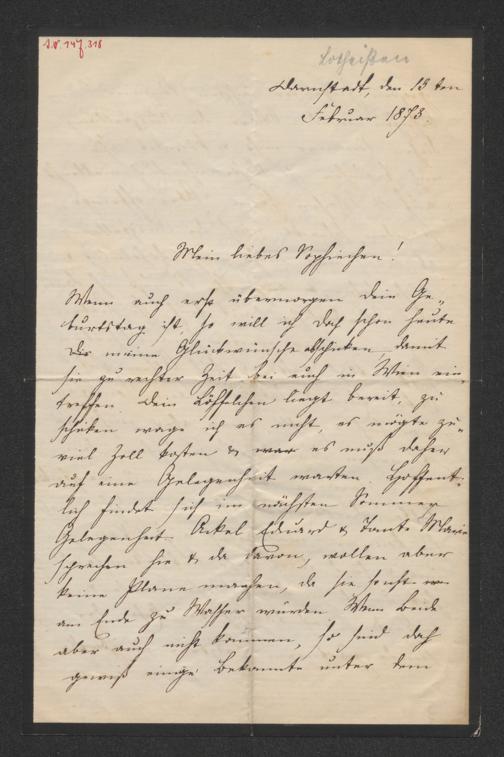 I.N. 147.318
Lotheißen
Darmstadt, den 13 ten
Februar 1873.
Mein liebes Sophiechen!
Wenn auch erst übermorgen dein Ge-
burtstag ist, so will ich doch schon heute
Dir meine Glückwünsche abschicken, damit
sie zu rechter Zeit bei euch in Wien ein-
treffen. Dein Löffelchen liegt bereit, zu
schicken wage ich es nicht, es mögte zu-
viel Zoll kosten & es muß daher
auf eine Gelegenheit warten. Hoffent-
lich findet sich im nächsten Sommer
Gelegenheit. Onkel Eduard & Tante Marie
sprechen hie & da davon, wollen aber
keine Plane machen, da sie sonst
am Ende zu Wasser würden. Wenn beide
aber auch nicht kommen, so sind doch
gewiß einige Bekannte unter dem